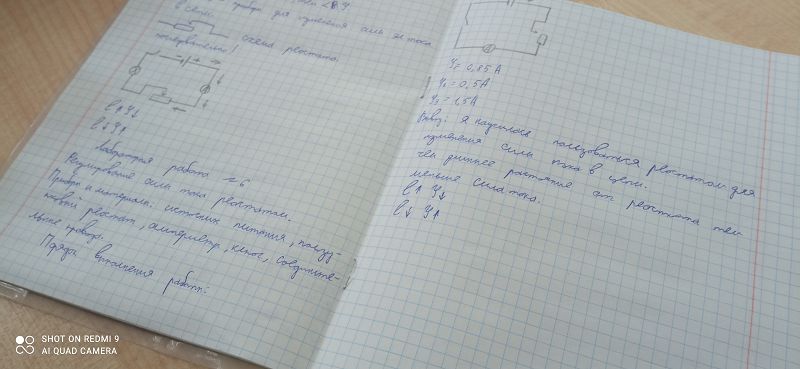 прибор для изменения силы тока
в цепи.
схема реостата.
последовательно!
l↑ У↓
l↓ У↑
Лабораторная работа №6
Регулирование силы тока реостатом.
Приборы и материалы: источник питания, ползун-
ковый реостат, амперметр, ключ, соедините-
льные провода.
Порядок выполнения работы:
У₁ = 0,85А
У₂ = 0,5А
У₃ = 1,5А
Вывод: я научилась пользоваться реостатом для
изменения силы тока в цепи.
чем длиннее растояние от реостата тем
меньше сила тока.
l↑ У↓
l↓ У↑
SHOT ON REDMI 9
AI QUAD CAMERA